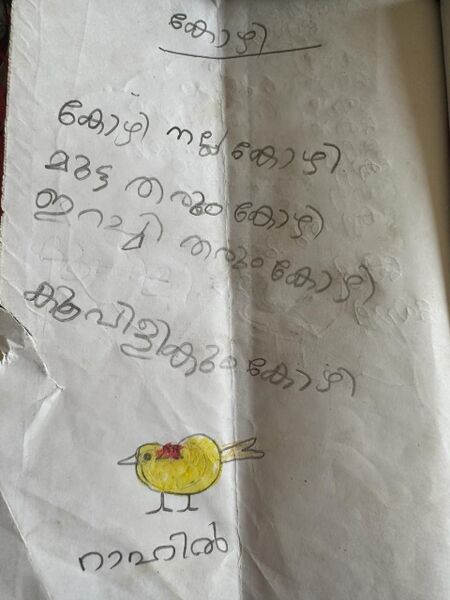 കോഴി
കോഴി നല്ല കോഴി
മുട്ട തരും കോഴി
ഇറച്ചി തരും കോഴി
കൂവിളികും കോഴി
റാഹിൽ